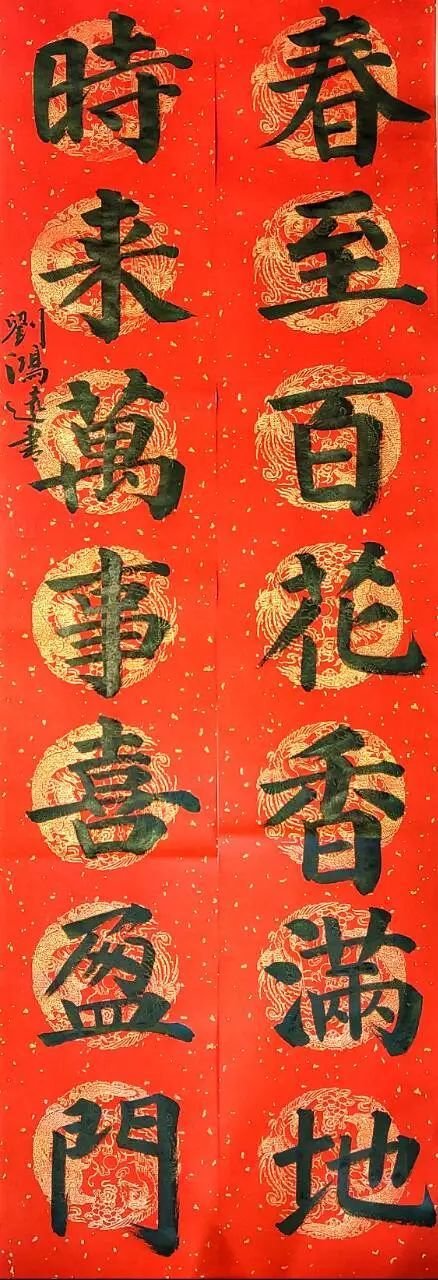 春至百花香滿地
時来萬事喜盈門
劉鴻遠書